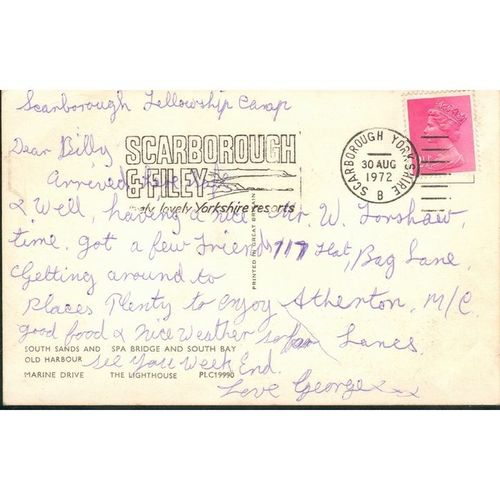 Scarborough Fellowship Camp
SCARBOROUGH YORKSHIRE
30 AUG
1972
B
Dear Billy
SCARBOROUGH
& FILEY
lovely Yorkshire resorts
Arrived safe
& Well, having a nice
time. got a few Friends
Getting around to
Places Plenty to enjoy
good food & Nice Weather so far
See You Week End.
Love George x x x
Mr. W. Forshaw,
717 Flat, Bag Lane,
Atherton, M/C.
Lancs.
PRINTED IN GREAT BRITAIN
SOUTH SANDS AND SPA BRIDGE AND SOUTH BAY
OLD HARBOUR
MARINE DRIVE THE LIGHTHOUSE PLC19990